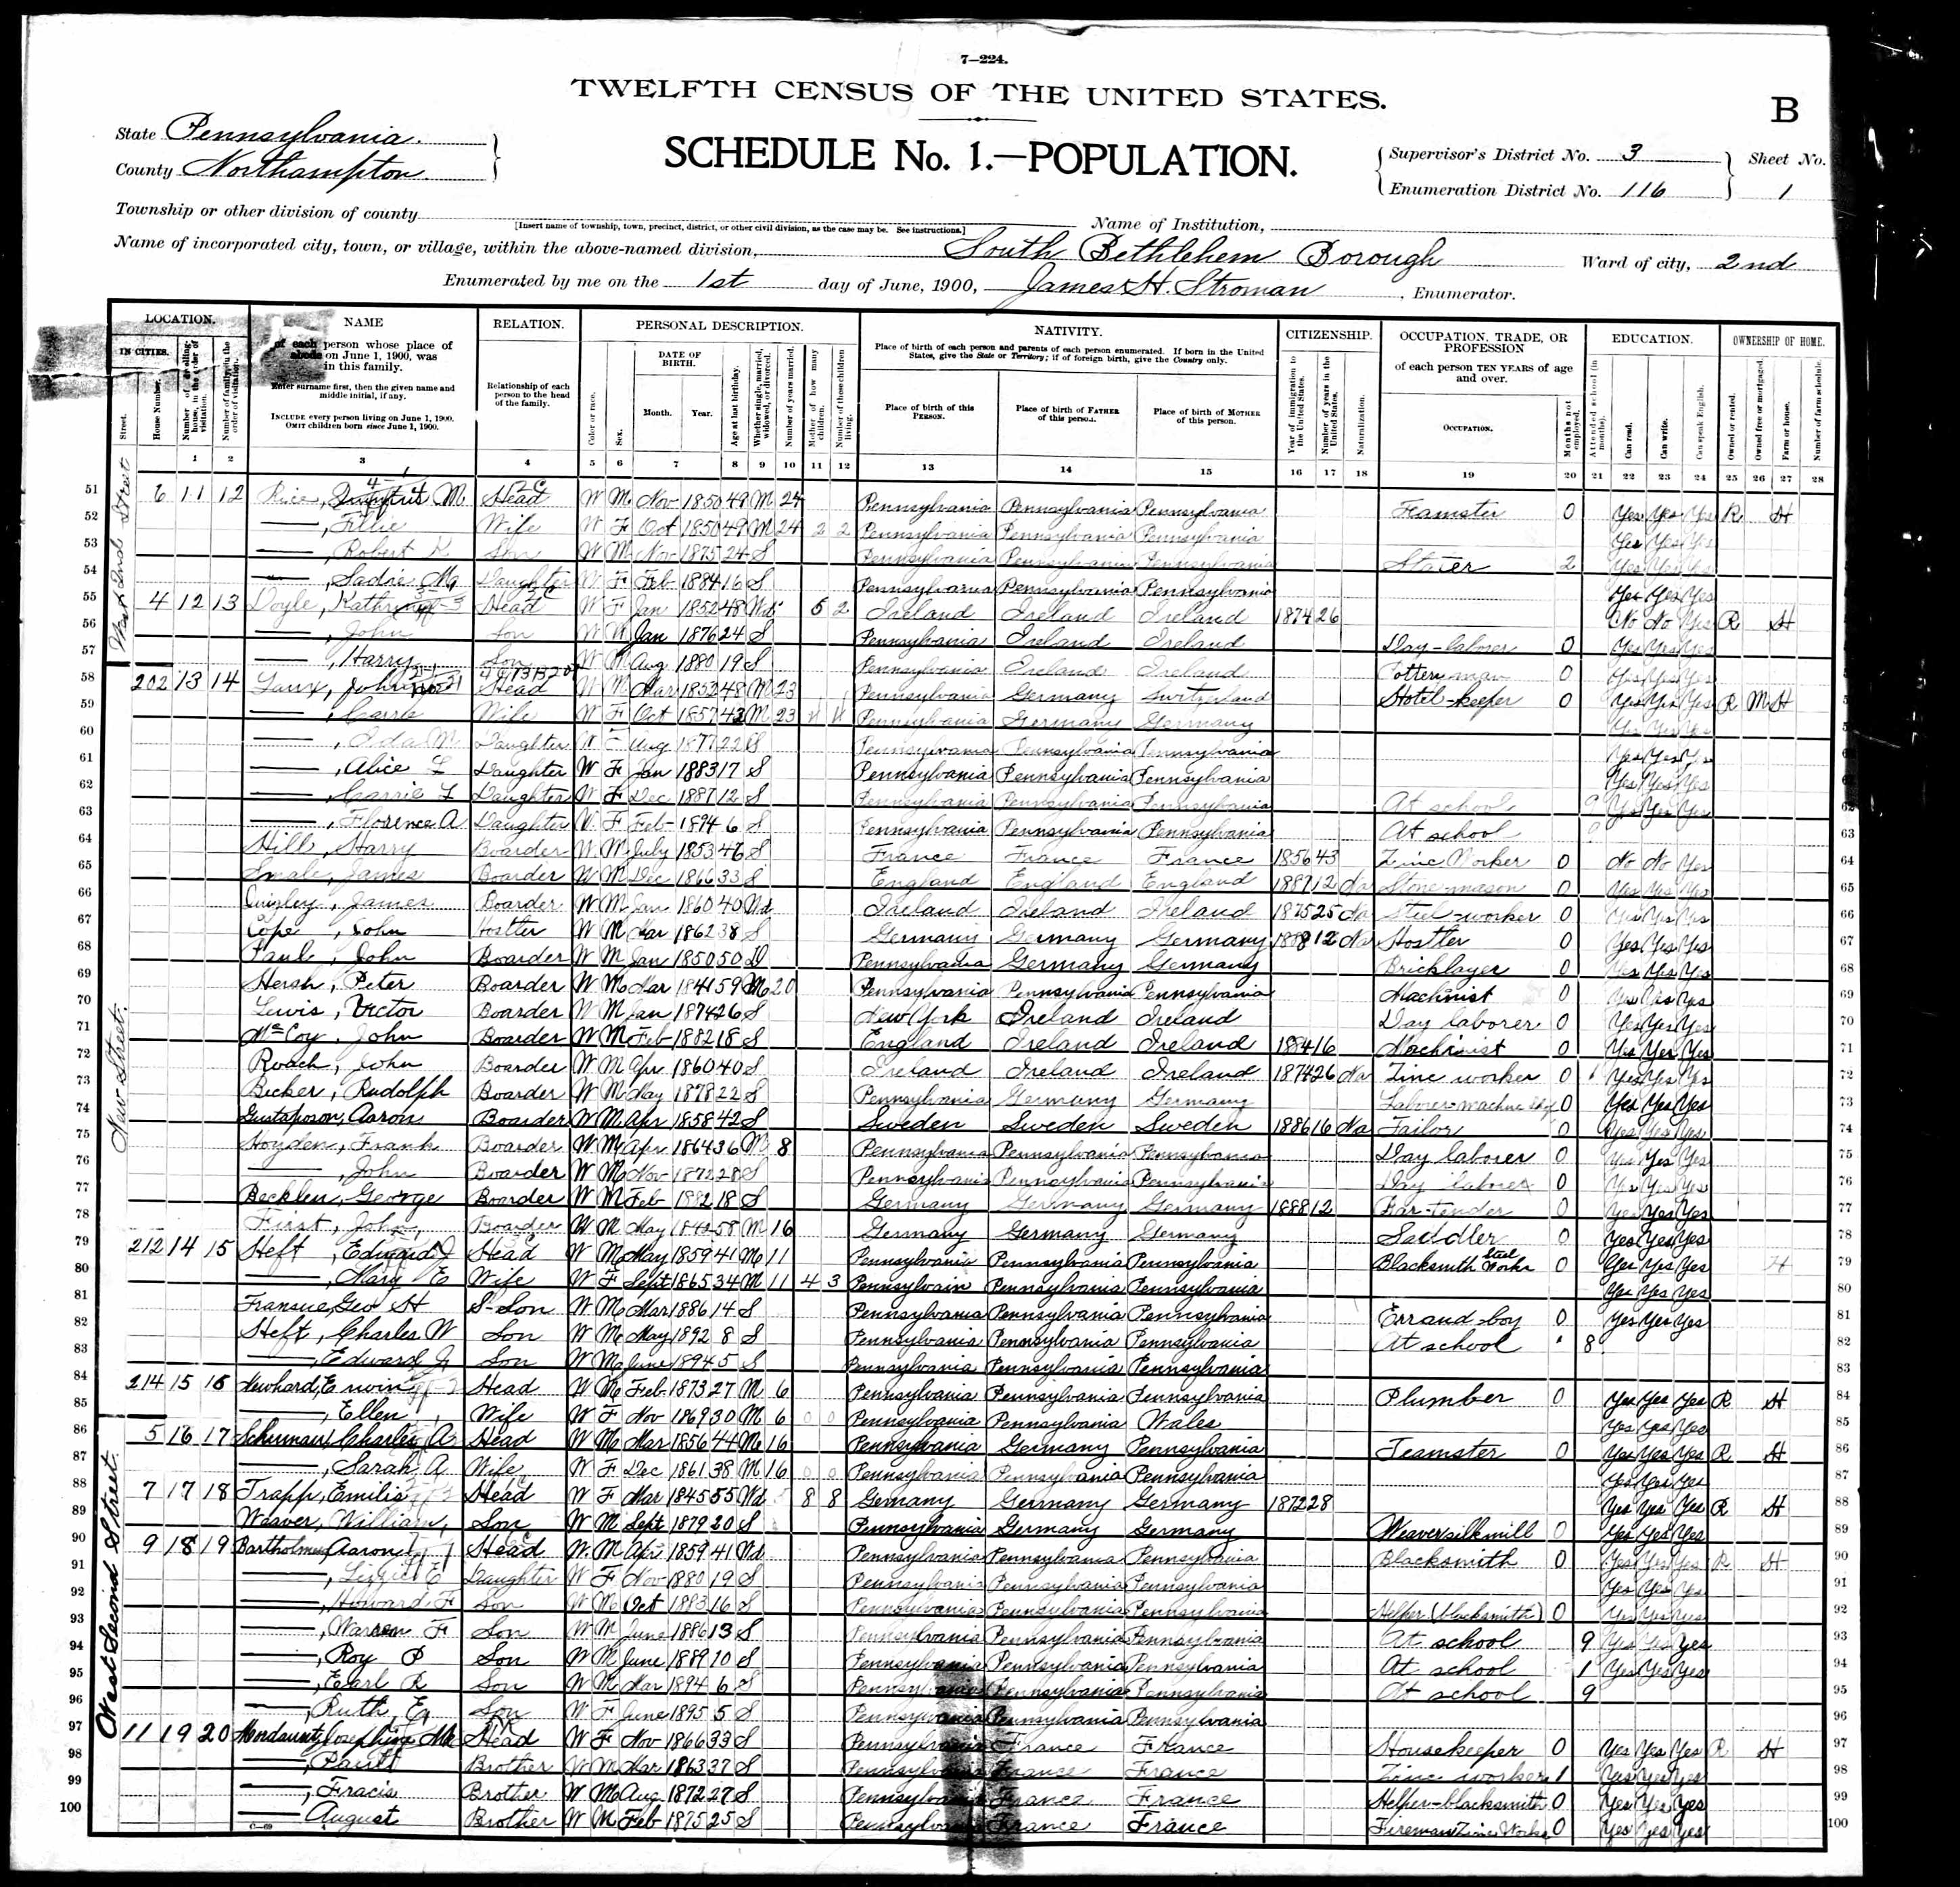 7—224.
TWELFTH CENSUS OF THE UNITED STATES.
B
State Pennsylvania.
County Northampton.
SCHEDULE No. 1.—POPULATION.
Supervisor's District No. 3
Enumeration District No. 116
Sheet No. 1
Township or other division of county
[Insert name of township, town, precinct, district, or other civil division, as the case may be. See instructions.]
Name of Institution,
Name of incorporated city, town, or village, within the above-named division, South Bethlehem Borough
Ward of city, 2nd
Enumerated by me on the 1st day of June, 1900, James H. Stroman, Enumerator.
LOCATION. NAME RELATION. PERSONAL DESCRIPTION. NATIVITY. CITIZENSHIP. OCCUPATION, TRADE, OR PROFESSION EDUCATION. OWNERSHIP OF HOME.
IN CITIES. Street. House Number. Number of dwelling-house, in the order of visitation. Number of family, in the order of visitation.
of each person whose place of abode on June 1, 1900, was in this family.
Enter surname first, then the given name and middle initial, if any.
INCLUDE every person living on June 1, 1900. OMIT children born since June 1, 1900.
Relationship of each person to the head of the family.
Color or race. Sex. DATE OF BIRTH. Month. Year. Age at last birthday. Whether single, married, widowed, or divorced. Number of years married. Mother of how many children. Number of these children living.
Place of birth of each person and parents of each person enumerated. If born in the United States, give the State or Territory; if of foreign birth, give the Country only.
Place of birth of this PERSON. Place of birth of FATHER of this person. Place of birth of MOTHER of this person.
Year of immigration to the United States. Number of years in the United States. Naturalization.
of each person TEN YEARS of age and over.
OCCUPATION. Months not employed.
Attended school (in months). Can read. Can write. Can speak English.
Owned or rented. Owned free or mortgaged. Farm or house. Number of farm schedule.
1 2 3 4 5 6 7 8 9 10 11 12 13 14 15 16 17 18 19 20 21 22 23 24 25 26 27 28
West 2nd Street
51 6 11 12 Rice, M Head W M Nov 1850 49 M 24 Pennsylvania Pennsylvania Pennsylvania Teamster 0 Yes Yes Yes R H
52 —, Tillie Wife W F Oct 1850 49 M 24 2 2 Pennsylvania Pennsylvania Pennsylvania Yes Yes Yes
53 —, Robert K Son W M Nov 1875 24 S Pennsylvania Pennsylvania Pennsylvania Slater 2 Yes Yes Yes
54 —, Sadie M Daughter W F Feb 1884 16 S Pennsylvania Pennsylvania Pennsylvania Yes Yes Yes
55 4 12 13 Doyle, Head W F Jan 1852 48 Wd 5 2 Ireland Ireland Ireland 1874 26 No No Yes R H
56 —, John Son W M Jan 1876 24 S Pennsylvania Ireland Ireland Day-laborer 0 Yes Yes Yes
57 —, Harry Son W M Aug 1880 19 S Pennsylvania Ireland Ireland 0 Yes Yes Yes
New Street.
58 202 13 14 Laux, John Head W M Mar 1852 48 M 23 Pennsylvania Germany Switzerland Hotel-keeper 0 Yes Yes Yes R M H
59 —, Wife W F Oct 1857 42 M 23 4 4 Pennsylvania Germany Germany Yes Yes Yes
60 —, Ida M Daughter W F Aug 1877 22 S Pennsylvania Pennsylvania Pennsylvania Yes Yes Yes
61 —, Alice L Daughter W F Jan 1883 17 S Pennsylvania Pennsylvania Pennsylvania Yes Yes Yes
62 —, Carrie L Daughter W F Dec 1887 12 S Pennsylvania Pennsylvania Pennsylvania At school 9 Yes Yes Yes
63 —, Florence A Daughter W F Feb 1894 6 S Pennsylvania Pennsylvania Pennsylvania At school
64 Hill, Harry Boarder W M July 1853 46 S France France France 1856 43 Zinc Worker 0 No No Yes
65 Smale, James Boarder W M Dec 1866 33 S England England England 1887 12 Na Stone mason 0 Yes Yes Yes
66 Quigley, James Boarder W M Jan 1860 40 Wd Ireland Ireland Ireland 1875 25 Na Steel-worker 0 Yes Yes Yes
67 Cope, John Hostler W M Mar 1862 38 S Germany Germany Germany 1888 12 Na Hostler 0 Yes Yes Yes
68 Paul, John Boarder W M Jan 1850 50 D Pennsylvania Germany Germany Bricklayer 0 Yes Yes Yes
69 Hersh, Peter Boarder W M Mar 1841 59 M 20 Pennsylvania Pennsylvania Pennsylvania Machinist 0 Yes Yes Yes
70 Lewis, Victor Boarder W M Jan 1874 26 S New York Ireland Ireland Day laborer 0 Yes Yes Yes
71 McCoy, John Boarder W M Feb 1882 18 S England Ireland Ireland 1884 16 Machinist 0 Yes Yes Yes
72 Roach, John Boarder W M Apr 1860 40 S Ireland Ireland Ireland 1874 26 Na Zinc worker 0 Yes Yes Yes
73 Becker, Rudolph Boarder W M May 1878 22 S Pennsylvania Germany Germany Laborer-machine 0 Yes Yes Yes
74 Gustafoson, Aaron Boarder W M Apr 1858 42 S Sweden Sweden Sweden 1886 16 Na Tailor 0 Yes Yes Yes
75 Hoyden, Frank Boarder W M Apr 1864 36 M 8 Pennsylvania Pennsylvania Pennsylvania Day laborer 0 Yes Yes Yes
76 —, John Boarder W M Nov 1872 28 S Pennsylvania Pennsylvania Pennsylvania Day laborer 0 Yes Yes Yes
77 Becklen, George Boarder W M Feb 1882 18 S Germany Germany Germany 1888 12 Bar-tender 0 Yes Yes Yes
78 First, John, Boarder W M May 1842 58 M 16 Germany Germany Germany Saddler 0 Yes Yes Yes
79 212 14 15 Heft, Edward J Head W M May 1859 41 M 11 Pennsylvania Pennsylvania Pennsylvania Blacksmith Steel Works 0 Yes Yes Yes H
80 —, Mary E Wife W F Sept 1865 34 M 11 4 3 Pennsylvain Pennsylvania Pennsylvania Yes Yes Yes
81 Fransue, Geo H S-Son W M Mar 1886 14 S Pennsylvania Pennsylvania Pennsylvania Errand-boy 0 Yes Yes Yes
82 Heft, Charles W Son W M May 1892 8 S Pennsylvania Pennsylvania Pennsylvania At school 8
83 —, Edward J Son W M June 1894 5 S Pennsylvania Pennsylvania Pennsylvania
84 214 15 16 Newhard, Erwin Head W M Feb 1873 27 M 6 Pennsylvania Pennsylvania Pennsylvania Plumber 0 Yes Yes Yes R H
85 —, Ellen Wife W F Nov 1869 30 M 6 0 0 Pennsylvania Pennsylvania Wales Yes Yes Yes
West Second Street.
86 5 16 17 Schuman, Charles A Head W M Mar 1856 44 M 16 Pennsylvania Germany Pennsylvania Teamster 0 Yes Yes Yes R H
87 —, Sarah A Wife W F Dec 1861 38 M 16 0 0 Pennsylvania Pennsylvania Pennsylvania Yes Yes Yes
88 7 17 18 Trapp, Emilie Head W F Mar 1845 55 Wd 8 8 Gemany Germany Germany 1872 28 Yes Yes Yes R H
89 Weaver, William, Son W M Sept 1879 20 S Pennsylvania Germany Germany Weaver silk mill 0 Yes Yes Yes
90 9 18 19 Bartholmew, Aaron Head W M Apr 1859 41 Wd Pennsylvania Pennsylvania Pennsylvania Blacksmith 0 Yes Yes Yes R H
91 —, Lizzie E Daughter W F Nov 1880 19 S Pennsylvania Pennsylvania Pennsylvania Yes Yes Yes
92 —, Howard F Son W M Oct 1883 16 S Pennsylvania Pennsylvania Pennsylvania Helper (blacksmith) 0 Yes Yes Yes
93 —, Warren F Son W M June 1886 13 S Pennsylvania Pennsylvania Pennsylvania At school 9 Yes Yes Yes
94 —, Roy P Son W M June 1889 10 S Pennsylvania Pennsylvania Pennsylvania At school 1 Yes Yes Yes
95 —, Earl R Son W M Mar 1894 6 S Pennsylvania Pennsylvania Pennsylvania At school 9
96 —, Ruth, E Son W F June 1895 5 S Pennsylvania Pennsylvania Pennsylvania
97 11 19 20 Mondaunt, Josephine M Head W F Nov 1866 33 S Pennsylvania France France Housekeeper 0 Yes Yes Yes R H
98 —, Paul Brother W M Mar 1863 37 S Pennsylvania France France Zinc worker 1 Yes Yes Yes
99 —, Fracis Brother W M Aug 1872 27 S Pennsylvania France France Helper-blacksmith 0 Yes Yes Yes
100 — August Brother W M Feb 1875 25 S Pennsylvania France France Fireman Zinc Works 0 Yes Yes Yes
C—69